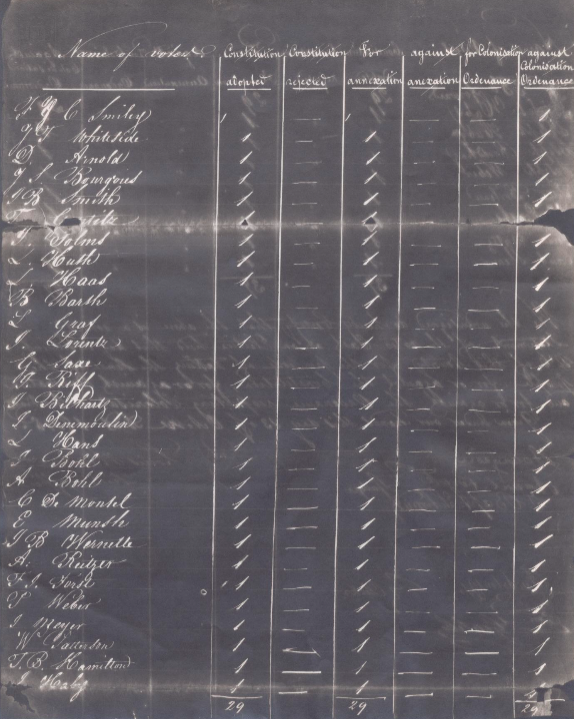 Name of voters Constitution adopted Constitution rejected For annexation against anexation for Colonisation Ordenance against Colonisation Ordenance
C Smiley / — / — — 1
Whiteside 1 — 1 — — 1
D Arnold 1 — 1 — — 1
Bourgous 1 — 1 — — 1
B Smith 1 — 1 — — 1
1 — 1 — — 1
Solms 1 — 1 — — 1
L Huth 1 — 1 — — 1
L Haas 1 — 1 — — 1
B Barth 1 — 1 — — 1
L Graf 1 — 1 — — 1
J Lorentz 1 — 1 — — 1
G Saxe 1 — 1 — — 1
Riff 1 — 1 — — 1
J Bilhartz 1 — 1 — — 1
1 — 1 — — 1
L Hans 1 — 1 — — 1
J Bohl 1 — 1 — — 1
A Bohl 1 — 1 — — 1
C De Montel 1 — 1 — — 1
E Munsh 1 — 1 — — 1
J B Wernette 1 — 1 — — 1
A. Reitzer 1 — 1 — — 1
F. J. 1 — 1 — — 1
Weber 1 — 1 — — 1
J Meyer 1 — 1 — — 1
Wm Patterson 1 — 1 — — 1
T. B. Hamilton 1 — 1 — — 1
J Haby 1 — 1 — — 1
29 29 29